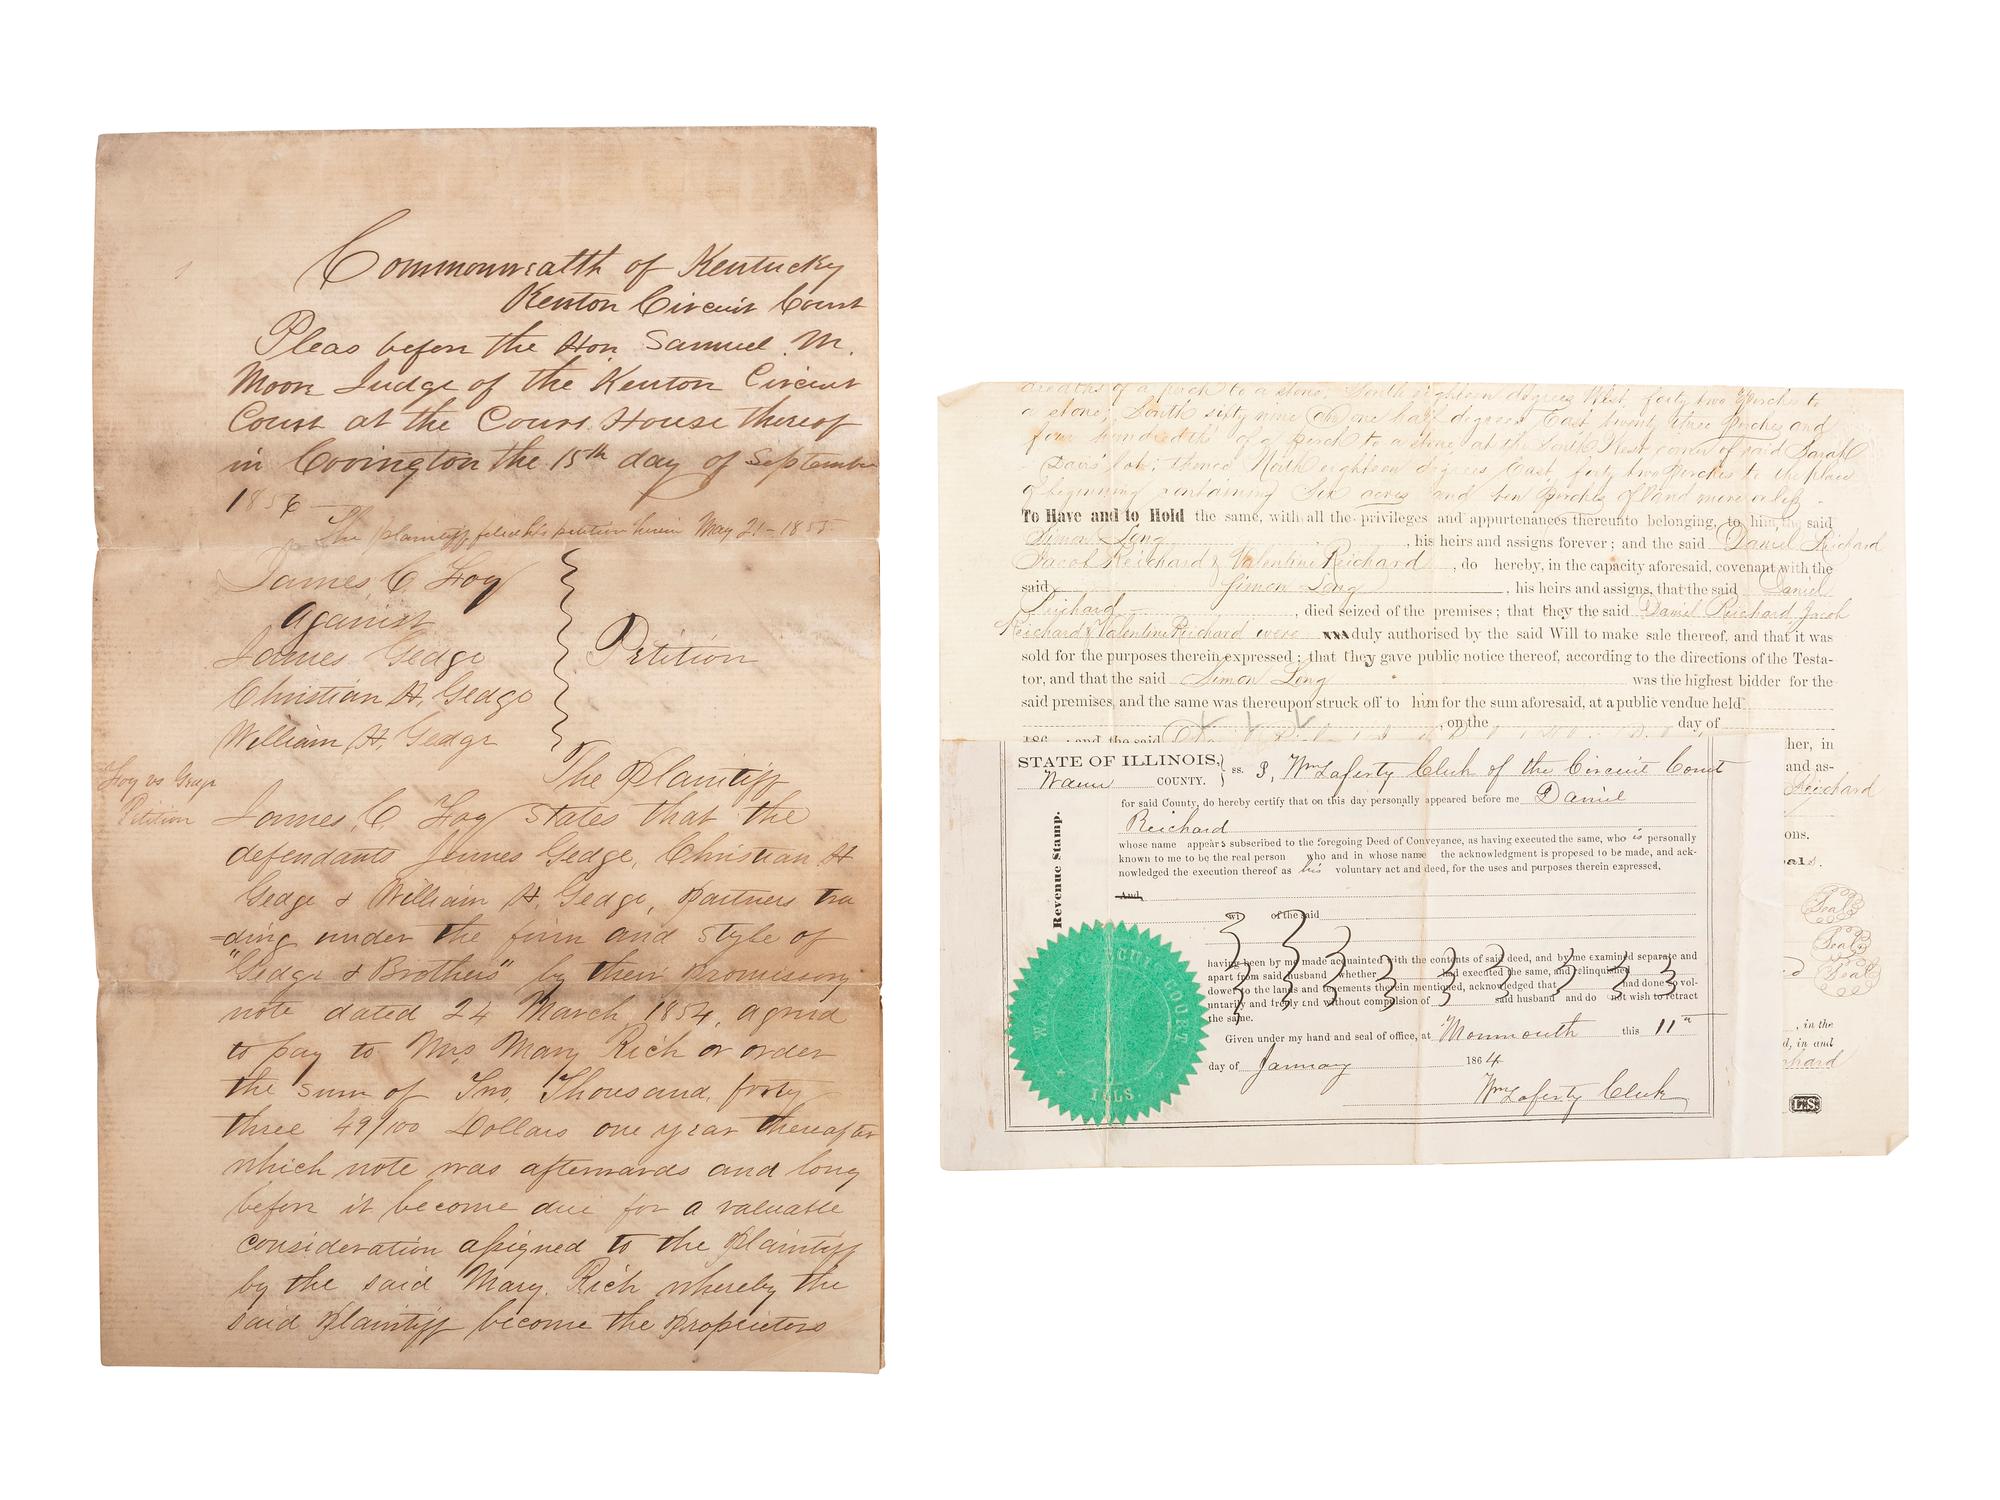 Commonwealth of Kentucky
Kenton Circuit Court
Pleas before the Hon. Samuel M.
Moon Judge of the Kenton Circuit
Court at the Court House thereof
in Covington the 15th day of September
1856
The plaintiff filed his petition herein May 21-1855
James, C Foy
against
James Gedge
Christian H, Gedge
William H, Gedge
Petition
The Plaintiff
Foy vs Gedge
Petition
James, C. Foy states that the
defendants James Gedge, Christian H
Gedge & William H. Gedge, partners tra
=ding under the firm and style of
"Gedge & Brothers" by their promissory
note dated 24 March 1854, agreed
to pay to Mrs Mary Rich or order
the sum of Two, Thousand, forty
three 49/100 Dollars one year thereafter
which note was afterwards and long
before it become due for a valuable
consideration assigned to the plaintiff
by the said Mary. Rich whereby the
said plaintiff become the proprietors
of a perch to a stone; South eighteen degrees West, forty two Perches to
a stone; South sixty nine & one half degrees East twenty three Perches and
four hundredths of a perch to a stone at the South West corner of said Sarah
Davis' lot; thence North eighteen degrees East, forty two Perches to the place
of beginning containing Six acres and ten Perches of land more or less
To Have and to Hold the same, with all the privileges and appurtenances thereunto belonging, to him, the said
Simon Long, his heirs and assigns forever; and the said Daniel Reichard
Jacob Reichard & Valentine Reichard, do hereby, in the capacity aforesaid, covenant with the
said Simon Long, his heirs and assigns, that the said Daniel
Reichard, died seized of the premises; that they the said Daniel Reichard, Jacob
Reichard & Valentine Reichard were xxx duly authorised by the said Will to make sale thereof, and that it was
sold for the purposes therein expressed; that they gave public notice thereof, according to the directions of the Testa-
tor, and that the said Simon Long was the highest bidder for the
said premises, and the same was thereupon struck off to him for the sum aforesaid, at a public vendue held
, on the day of
186 ; and the said
her, in
and as-
Reichard
ons.
als.
Seal
Seal
Seal
, in the
d, in and
chard
L.S.
STATE OF ILLINOIS, } ss. I, Wm Laferty Clerk of the Circuit Court
Warren COUNTY.
for said County, do hereby certify that on this day personally appeared before me Daniel
Reichard
whose name appears subscribed to the foregoing Deed of Conveyance, as having executed the same, who is personally
known to me to be the real person who and in whose name the acknowledgment is proposed to be made, and ack-
nowledged the execution thereof as his voluntary act and deed, for the uses and purposes therein expressed.
And,
wi of the said
having been by me made acquainted with the contents of said deed, and by me examined separate and
apart from said husband whether had executed the same, and relinquished
dower to the lands and tenements therein mentioned, acknowledged that had done so vol-
untarily and freely and without compulsion of said husband and do not wish to retract
the same.
Given under my hand and seal of office, at Monmouth this 11th
day of January 1864
Wm Laferty Clerk
Revenue Stamp.
WARREN CIRCUIT COURT
ILLS.